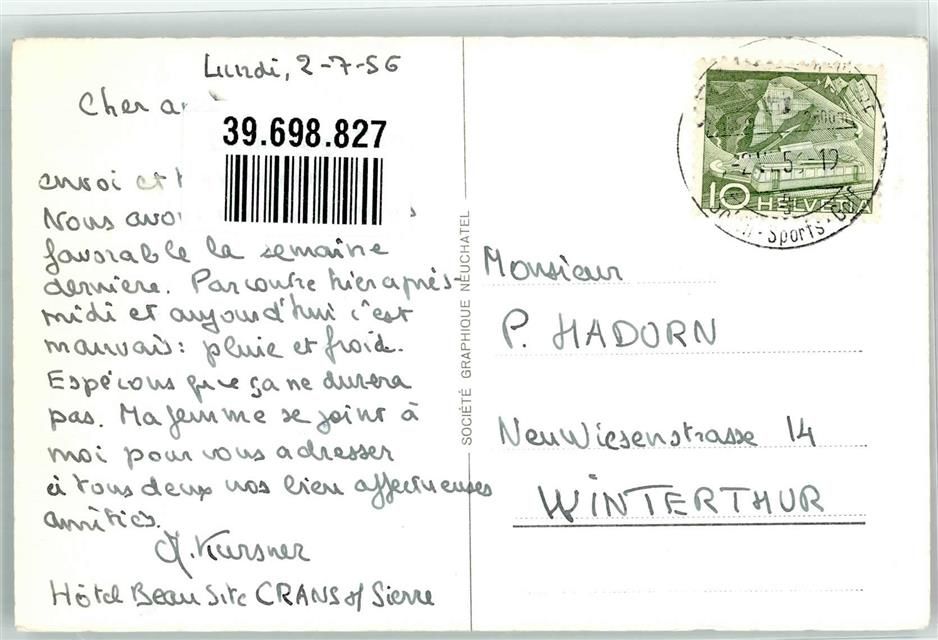 Lundi, 2-7-56
Cher
39.698.827
envoi et
Nous
favorable la semaine
dernière. Par contre hier après-
midi et aujourd'hui c'est
mauvais: pluie et froid.
Espérons que ça ne durera
pas. Ma femme se joint à
moi pour vous adresser
à tous deux nos bien affectueuses
amitiés.
Kursner
Hôtel Beau Site CRANS s/ Sierre
SOCIÉTÉ GRAPHIQUE NEUCHATEL
10 HELVETIA
Sports
Monsieur
P. HADORN
NeuWiesenstrasse 14
WINTERTHUR